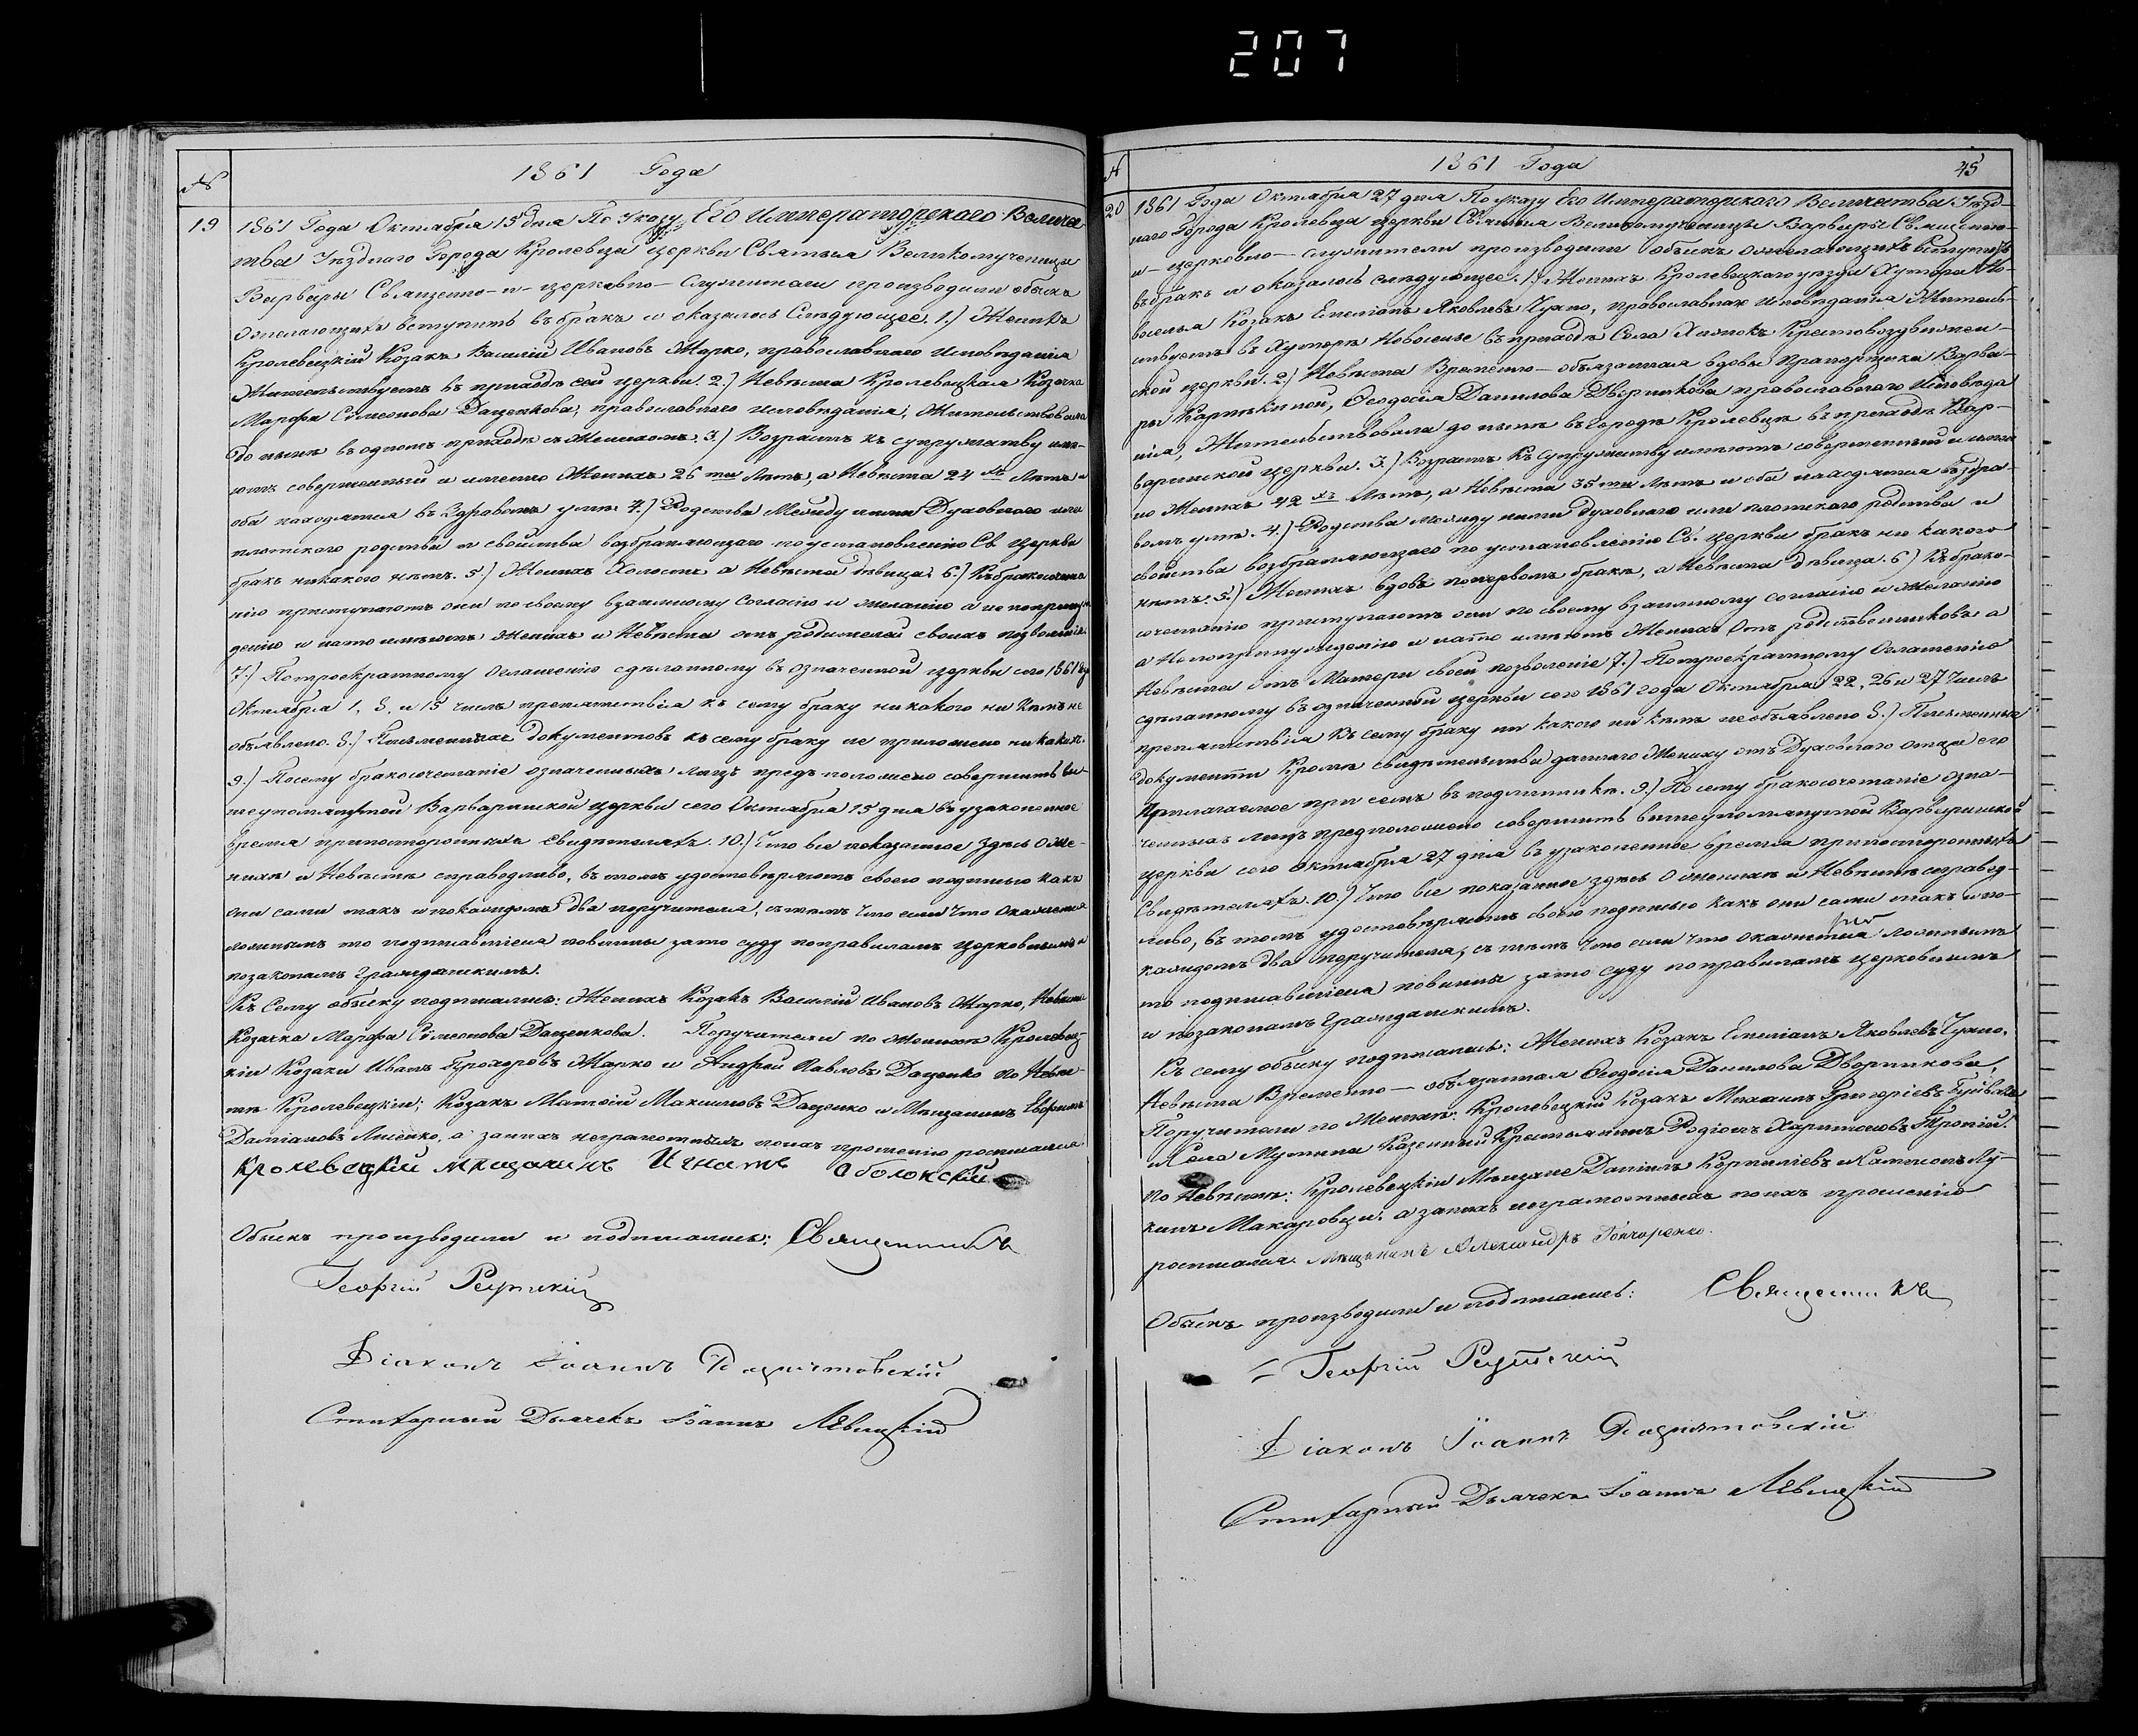 207
№ 1861 Года
19 1861 Года Октября 15 дня По Указу Его Императорскаго Величес
тва Уѣзднаго Города Кролевца церкви Святыя Великомученицы
Варвары Священно-и-церковно-Служители производили обыскъ
о желающихъ вступить въ бракъ и оказалось Слѣдующее. 1.) Женихъ
Кролевецкій Козакъ Василій Ивановъ Жарко, православнаго исповѣданія
Жительствуетъ въ приходѣ сей церкви. 2.) Невѣста Кролевецкая Козачка
Марфа Сѵмеонова Даценкова, православнаго исповѣданія, Жительствовала
до нынѣ въ одномъ приходѣ съ Женихомъ. 3.) Возрастъ къ супружеству имѣ-
ютъ совершенный и именно Женихъ 26 ти Лѣтъ, а Невѣста 24 хъ Лѣтъ и
оба находятся въ Здравомъ умѣ. 4.) Родства Между ними Духовнаго или
плотскаго родства и свойства возбраняющаго по установленію Св. Церкви
бракъ никакого нѣтъ. 5.) Женихъ Холостъ а Невѣста дѣвица. 6.) Къ бракосочета
нію приступаютъ они по своему взаимному Согласію и желанію а не по принуж
денію и на то имѣютъ Женихъ и Невѣста отъ родителей своихъ позволеніе.
7.) По троекратному Оглашенію сдѣланному въ означенной церкви сего 1861 года
Октября 1, 8, и 15 числъ препятствія къ сему браку никакого ни кѣмъ не
объявлено. 8.) Письменныхъ документовъ къ сему браку не приложено никакихъ.
9.) Посему бракосочетаніе означенныхъ лицъ предположено совершить вы-
шеупомянутой Варваринской церкви сего Октября 15 дня въ узаконенное
время при постороннихъ свидѣтеляхъ. 10.) Что все показанное здѣсь о Же-
нихѣ и Невѣстѣ справедливо, въ томъ удостовѣряютъ своею подписью какъ
они сами такъ и по каждомъ два поручителя, съ тѣмъ что если что окажется
ложнымъ то подписавшіеся повинны за то суду по правиламъ церковнымъ и
по законамъ гражданскимъ.
Къ Сему обыску подписались: Женихъ Козакъ Василій Ивановъ Жарко, Невѣста
Козачка Марфа Сѵмеонова Даценкова. Поручители по Женихѣ Кролевец-
кіи Козаки Иванъ Прохоровъ Жарко и Андрей Павловъ Даценко по Невѣс-
тѣ Кролевецкіи; Козакъ Матѳій Максимовъ Даценко и Мѣщанинъ Ефремъ
Даміановъ а за нихъ неграмотныхъ по ихъ прошенію росписался
Кролевецкій мѣщанинъ Игнатъ Оболонскій
Обыскъ производили и подписались: Священникъ
Георгій
Діаконъ Іоаннъ
Стихарный Дьячекъ Іоаннъ Левицкій
№ 1861 Года 45
20 1861 Года Октября 27 дня По указу Его Императорскаго Величества Уѣзд-
наго Города Кролевца церкви Святыя Великомученицы Варвары Священно-
и-церковно-служители производили обыскъ о желающихъ вступить
въ бракъ и оказалось слѣдующее. 1.) Женихъ Кролевецкаго уѣзда Хутора Но-
воселья Козакъ Емеліанъ Яковлевъ православнаго исповѣданія Житель-
ствуетъ въ Хуторѣ Новосельѣ въ приходѣ Села Крестовоздвижен-
ской церкви. 2.) Невѣста Временно-обязанная вдовы Прапорщика Варва-
ры Ѳеодосія Данилова Дворникова православнаго исповѣда
нія, Жительствовала до нынѣ въ городѣ Кролевцѣ въ приходѣ Вар-
варинской церкви. 3.) Возрастъ къ супружеству имѣютъ совершенный и имен
но Женихъ 42 хъ Лѣтъ, а Невѣста 35 ти Лѣтъ и оба находятся въ здра-
вомъ умѣ. 4.) Родства между ними духовнаго или плотскаго родства и
свойства возбраняющаго по установленію Св. церкви бракъ ни какого
нѣтъ. 5.) Женихъ вдовъ по первомъ бракѣ, а Невѣста дѣвица. 6.) Къ брако-
сочетанію приступаютъ они по своему взаимному согласію и желанію
а не по принужденію и на то имѣютъ Женихъ отъ родственниковъ а
Невѣста отъ Матери своей позволеніе 7.) По троекратному Оглашенію
сдѣланному въ означенной церкви сего 1861 года Октября 22, 26 и 27 Числъ
препятствія къ сему браку ни какого ни кѣмъ не объявлено 8.) Письменные
документы кромѣ свидѣтельства даннаго Жениху отъ Духовнаго отца его
прилагаемое при семъ въ подлинникѣ. 9.) Посему бракосочетаніе озна-
ченныхъ лицъ предположено совершить вышеупомянутой Варваринской
церкви сего Октября 27 дня въ узаконенное время при постороннихъ
Свидѣтеляхъ. 10.) Что все показанное здѣсь о женихѣ и Невѣстѣ справед-
ливо, въ томъ удостовѣряютъ своею подписью какъ они сами такъ и по-
каждомъ два поручителя, съ тѣмъ что если что окажется ложнымъ
то подписавшіеся повинны за то суду по правиламъ церковнымъ
и по законамъ гражданскимъ.
Къ сему обыску подписались: Женихъ Козакъ Емеліанъ Яковлевъ
Невѣста Временно-обязанная Ѳеодосія Данилова Дворникова,
Поручители по Женихѣ: Кролевецкій Козакъ Михаилъ Григоріевъ
и Села Мутина Казенный Крестьянинъ Родіонъ Харитоновъ
По Невѣстѣ: Кролевецкіи Мѣщане Даніилъ Корниліевъ и
Макаровцы. а за нихъ неграмотныхъ по ихъ прошенію
росписался Мѣщанинъ Александръ Гончаренко.
Обыскъ производили и подписались: Священникъ
Георгій
Діаконъ Іоаннъ
Стихарный Дьячекъ Іоаннъ Левицкій